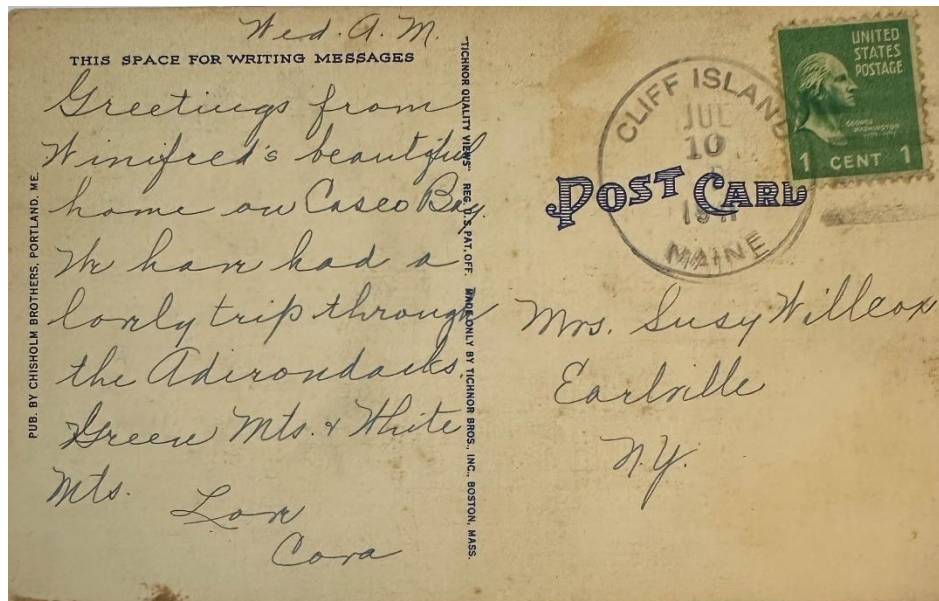 Wed. A. M.
THIS SPACE FOR WRITING MESSAGES
Greetings from
Winifred's beautiful
home on Casco Bay.
We have had a
lovely trip through
the Adirondacks,
Green Mts. & White
Mts.
Love
Cora
PUB. BY CHISHOLM BROTHERS, PORTLAND, ME.
"TICHNOR QUALITY VIEWS" REG. U. S. PAT. OFF. MADE ONLY BY TICHNOR BROS., INC., BOSTON, MASS.
POST CARD
CLIFF ISLAND
JUL
10
MAINE
UNITED
STATES
POSTAGE
GEORGE
WASHINGTON
1 CENT 1
Mrs. Susy Willcox
Earlville
N.Y.